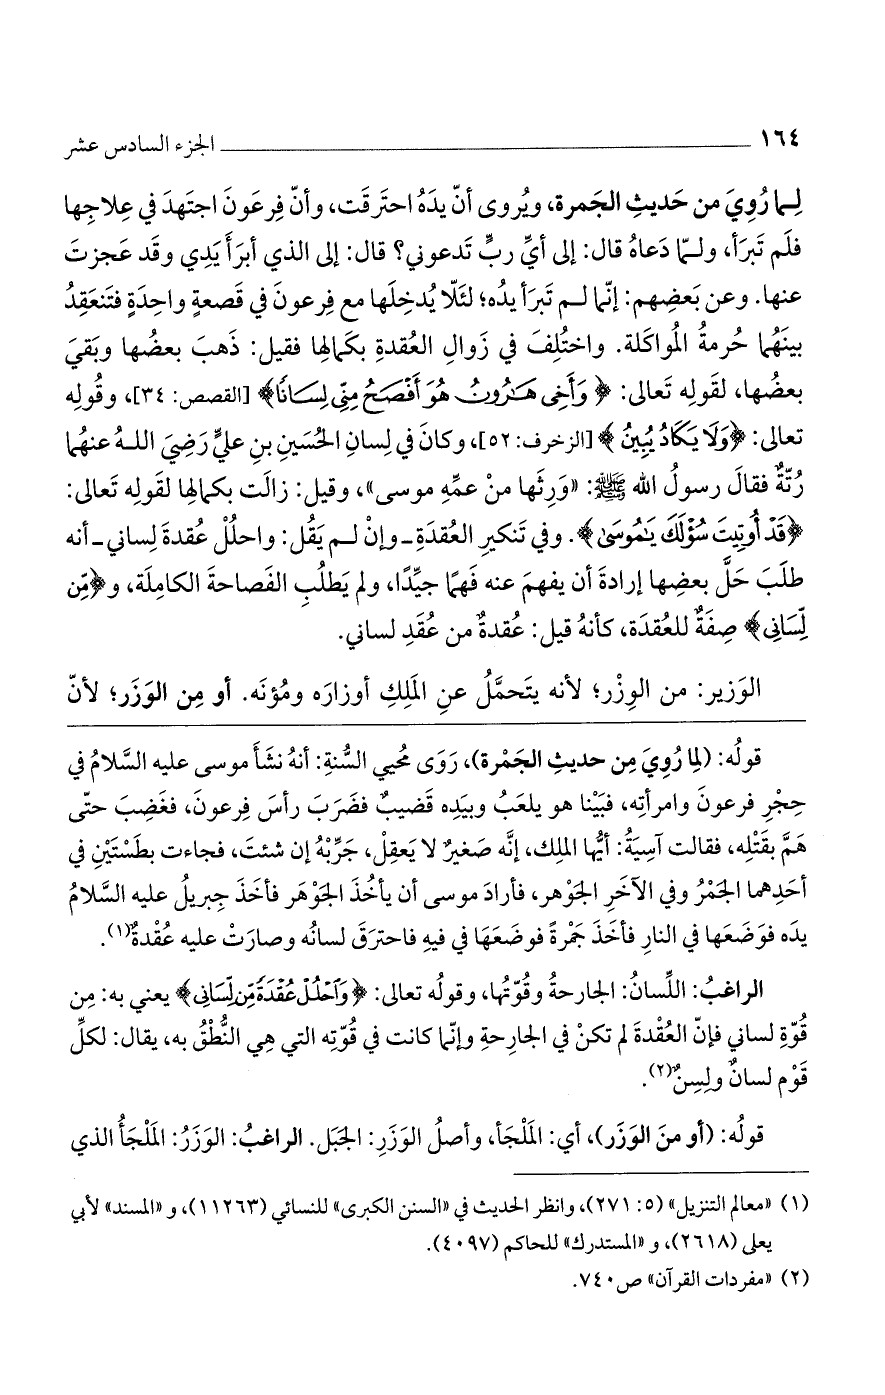 ١٦٤ الجزء السادس عشر
لِـما رُوِيَ من حَديثِ الجَمرة، ويُروى أنّ يدَهُ احتَرقَت، وأنّ فِرعَونَ اجتَهدَ في عِلاجِها
فلَم تَبرَأ، ولـمّا دَعاهُ قال: إلى أيِّ ربٍّ تَدعوني؟ قال: إلى الذي أبرَأَ يَدِي وقَد عَجزتَ
عنها. وعن بَعضِهم: إنّما لـم تَبرَأ يدُه؛ لئَلّا يُدخِلَها مع فِرعونَ في قَصعةٍ واحِدَةٍ فتَنعَقِدُ
بينَهُما حُرمةُ المُواكَلة. واختُلِفَ في زَوالِ العُقدةِ بكَمالِها فقيل: ذَهبَ بعضُها وبقَيَ
بعضُها، لقَولِه تَعالى: ﴿وَأَخِى هَـٰرُونُ هُوَ أَفْصَحُ مِنِّى لِسَانًا﴾ [القصص: ٣٤]، وقُولِه
تعالى: ﴿وَلَا يَكَادُ يُبِينُ﴾ [الزخرف: ٥٢]، وكانَ في لِسانِ الحُسَينِ بنِ عليٍّ رَضِيَ اللـهُ عنهُما
رُتّةٌ فقالَ رسولُ الله ﷺ: «وَرِثَها منْ عمِّهِ موسى»، وقيل: زالَت بكمالِها لقَولِه تَعالى:
﴿قَدْ أُوتِيتَ سُؤْلَكَ يَـٰمُوسَىٰ﴾. وفي تَنكيرِ العُقدَةِ ـ وإنْ لـم يَقُل: واحلُلْ عُقدةَ لِساني ـ أنه
طلَبَ حَلَّ بعضِها إرادةَ أن يفهمَ عنه فَهمًا جيِّدًا، ولم يَطلُبِ الفَصاحةَ الكامِلَة، و﴿مِّن
لِّسَانِى﴾ صِفَةٌ للعُقدَة، كأنهُ قيل: عُقدةٌ من عُقَدِ لساني.
الوَزير: من الوِزْر؛ لأنه يتَحمَّلُ عنِ المَلِكِ أوزارَه ومُؤنَه. أو مِن الوَزَر؛ لأنّ
قولُه: (لِما رُوِيَ مِن حديثِ الجَمْرة)، رَوَى مُحيي السُّنةِ: أنهُ نشَأَ موسى عليه السَّلامُ في
حِجْرِ فرعونَ وامرأتِه، فبَيْنا هو يلعَبُ وبيَدِه قَضيبٌ فضَرَبَ رأسَ فِرعونَ، فغَضِبَ حتّى
هَمَّ بقَتْلِه، فقالت آسِيَةُ: أيُّها الملِك، إنَّه صَغيرٌ لا يَعقِلُ، جَرِّبْهُ إن شئتَ، فجاءت بطَسْتَيْنِ في
أحَدِهما الجَمْرُ وفي الآخَرِ الجَوْهر، فأرادَ موسى أن يأخُذَ الجَوْهَر فأخَذَ جِبريلُ عليه السَّلامُ
يدَه فوَضَعَها في النارِ فأخَذَ جَمْرةً فوضَعَها في فيهِ فاحترَقَ لسانُه وصارَتْ عليه عُقْدةٌ(١).
الراغبُ: اللِّسانُ: الجارحةُ وقُوّتُها، وقولُه تعالى: ﴿وَٱحْلُلْ عُقْدَةً مِّن لِّسَانِى﴾ يعني به: مِن
قُوّةِ لساني فإنّ العُقْدةَ لم تكنْ في الجارِحةِ وإنّما كانت في قُوّتِه التي هِي النُّطْقُ به، يقال: لكلِّ
قَوْم لسانٌ ولِسِنٌ(٢).
قولُه: (أو منَ الوَزَر)، أي: المَلْجَأ، وأصلُ الوَزَرِ: الجَبَل. الراغبُ: الوَزَرُ: المَلْجَأُ الذي
(١) «معالم التنزيل» (٥: ٢٧١)، وانظر الحديث في «السنن الكبرى» للنسائي (١١٢٦٣)، و «المسند» لأبي
يعلى (٢٦١٨)، و «المستدرك» للحاكم (٤٠٩٧).
(٢) «مفردات القرآن» ص٧٤٠.